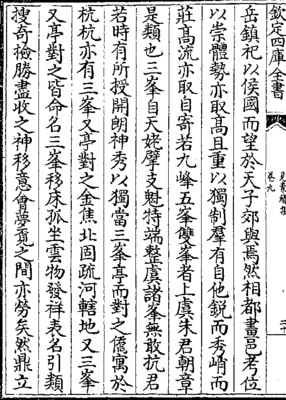 欽定四庫全書
卷九
岳鎮祀以侯國而望於天子郊與焉然相都書邑考位
以崇體勢亦取高且重以獨制羣有自他銳而秀峭而
莊高流亦取自寄若九峰五峯雙峯者上虞朱君朝章
是類也三峯自天姥孽支魁特端整虞諸峯無敢抗君
若時有所授開朗神秀以獨當三峯亭而對之僑寓於
杭杭亦有三峯又亭對之金焦北固疏河轄地又三峯
又亭對之皆命名三峯移床孤坐雲物發祥表名引類
搜奇撿勝盡收之神移意會夢寛之間亦勞矣然鼎立